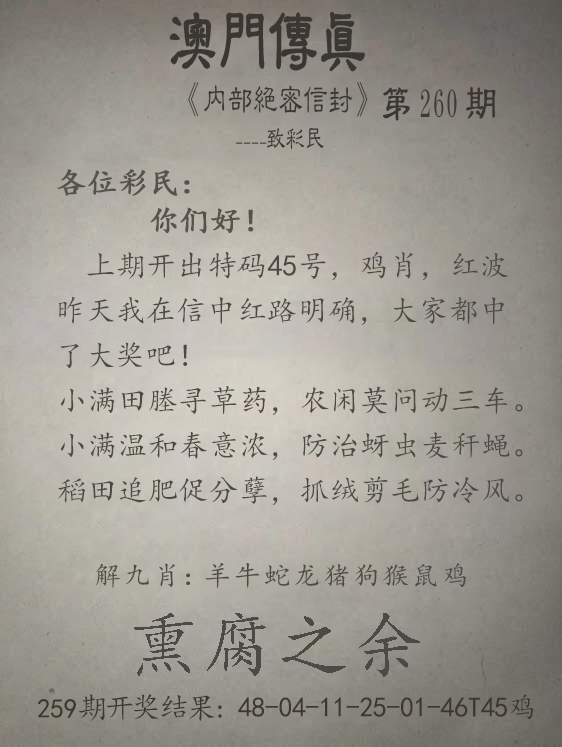 澳門傳眞
《内部絕密信封》第260期
----致彩民
各位彩民：
你们好！
上期开出特码45号，鸡肖，红波
昨天我在信中红路明确，大家都中
了大奖吧！
小满田塍寻草药，农闲莫问动三车。
小满温和春意浓，防治蚜虫麦秆蝇。
稻田追肥促分孽，抓绒剪毛防冷风。
解九肖：羊牛蛇龙猪狗猴鼠鸡
熏腐之余
259期开奖结果：48-04-11-25-01-46T45鸡